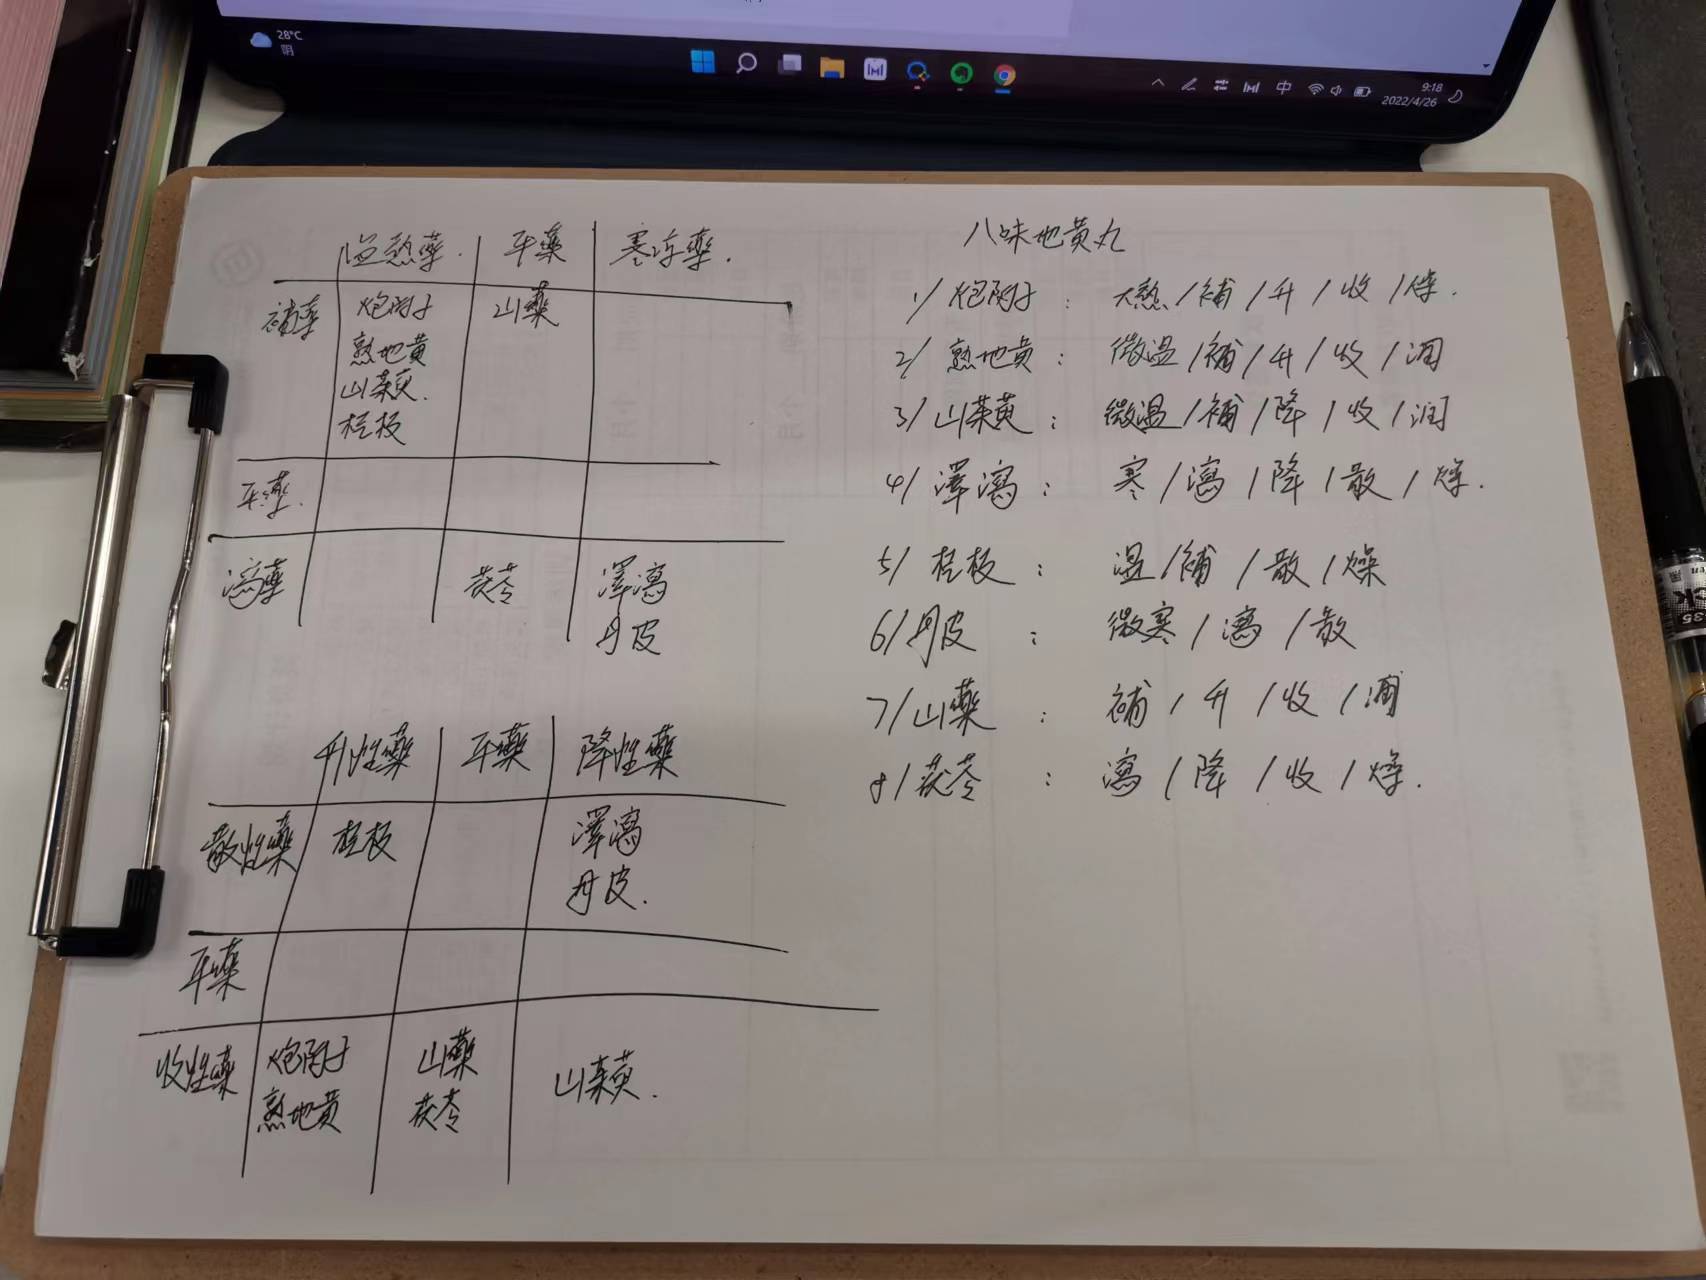 28°C
阴
中
9:18
2022/4/26
温热藥. 平藥 寒凉藥.
補藥 炮附子 山藥
熟地黄
山茱萸.
桂枝
平藥.
瀉藥 茯苓 澤瀉
丹皮
升性藥 平藥 降性藥
散性藥 桂枝 澤瀉
丹皮.
平藥
收性藥 炮附子 山藥 山茱萸.
熟地黄 茯苓
八味地黄丸
1/ 炮附子: 大熱/補/升/收/燥.
2/ 熟地黄: 微温/補/升/收/润
3/ 山茱萸: 微温/補/降/收/润
4/ 澤瀉: 寒/瀉/降/散/燥.
5/ 桂枝: 温/補/散/燥
6/ 丹皮: 微寒/瀉/散
7/ 山藥: 補/升/收/潤
8/ 茯苓: 瀉/降/收/燥.